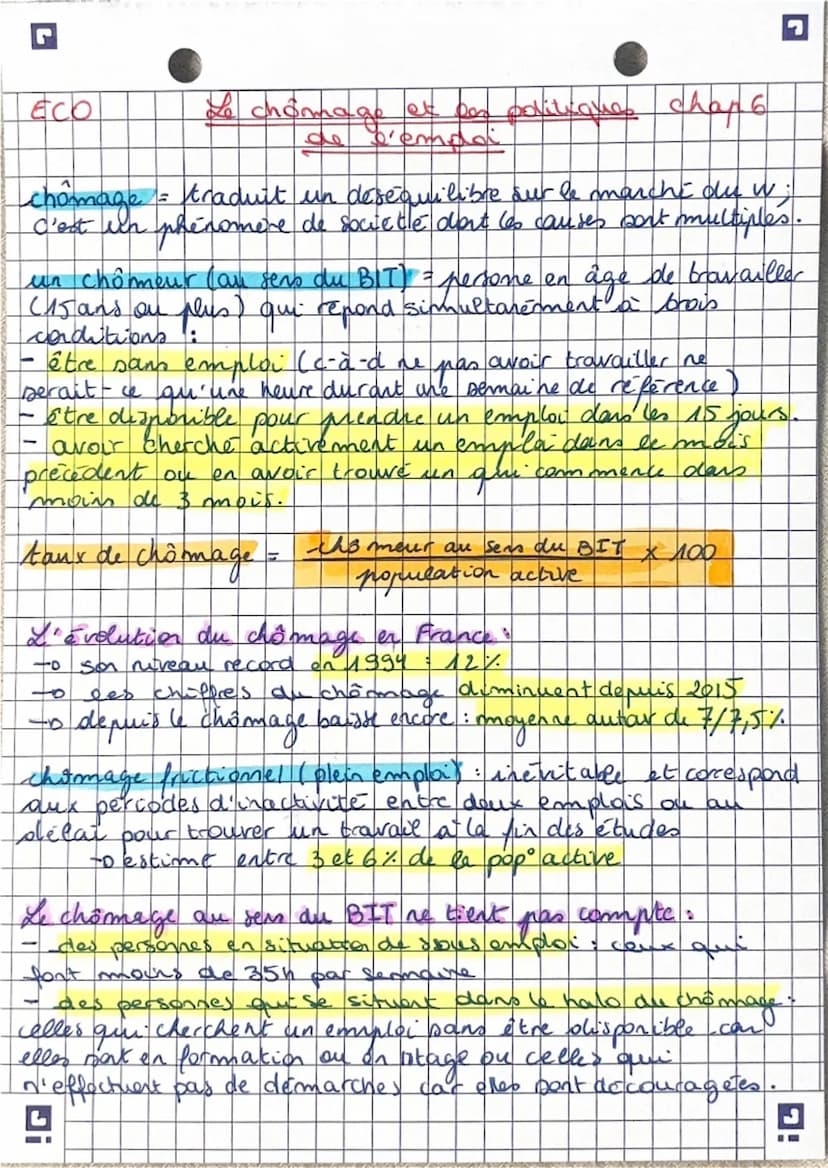 ECO Le chômage et les politiques chap 6
de l'emploi
chômage = traduit un déséquilibre sur le marché du W ;
c'est un phénomène de société dont les causes sont multiples.
un chômeur (au sens du BIT) = personne en âge de travailler
(15 ans ou plus) qui répond simultanément à trois
conditions :
- être sans emploi (c-à-d ne pas avoir travailler ne
serait-ce qu'une heure durant une semaine de référence)
- être disponible pour prendre un emploi dans les 15 jours.
- avoir cherché activement un emploi dans le mois
précédent ou en avoir trouvé un qui commence dans
moins de 3 mois.
taux de chômage = chômeur au sens du BIT × 100
population active
L'évolution du chômage en France :
→ son niveau record en 1994 : 12%
→ les chiffres du chômage diminuent depuis 2015
→ depuis le chômage baisse encore : moyenne autour de 7/7,5%.
chômage frictionnel (plein emploi) : inévitable et correspond
aux périodes d'inactivité entre deux emplois ou au
délai pour trouver un travail à la fin des études
→ estimé entre 3 et 6% de la pop° active
Le chômage au sens du BIT ne tient pas compte :
- des personnes en situation de sous emploi : ceux qui
font moins de 35h par semaine
- des personnes qui se situent dans le halo du chômage :
celles qui cherchent un emploi sans être disponible car
elles sont en formation ou en stage ou celles qui
n'effectuent pas de démarches car elles sont découragées.